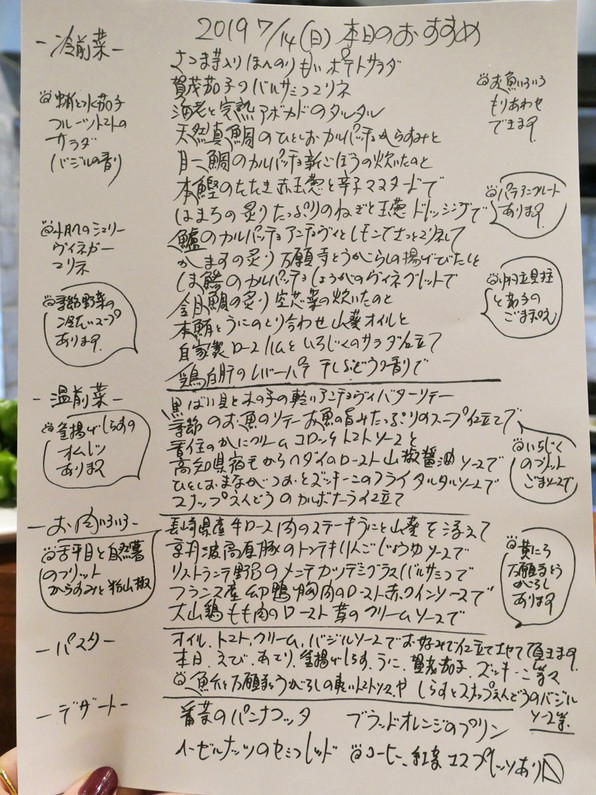 2019 7/14(日) 本日のおすすめ
-冷前菜-
さつま芋入り ほんのり甘い ポテトサラダ
賀茂茄子のバルサミコマリネ
海老と完熟アボカドのタルタル
天然真鯛のひとしおカルパッチョ からすみと
月二鯛のカルパッチョ 新ごぼうの炊いたのと
本鰹のたたき 赤玉葱と辛子マスタードで
はまちの炙り たっぷりのねぎと玉葱ドレッシングで
鱸のカルパッチョ アンディヴィと
かますの炙り 万願寺とうがらしの揚げびたしと
しま鯵のカルパッチョ しょうがのヴィネグレットで
金目鯛の炙り 空芯菜の炊いたのと
本鮪とうにのとり合わせ 山葵オイルと
自家製ロースハムといちじくのサラダ仕立て
鶏白肝のレバーパテ 干しぶどうの香りで
水茄子
フルーツトマトの
サラダ
バジルの香り
シェリー
ヴィネガー
マリネ
季節野菜の
冷たいスープ
あります
お魚いろいろ
もりあわせ
できます
パテアンクルート
あります
ごま和え
-温前菜-
黒ばい貝ときの子の軽いアンチョヴィバターソテー
季節のお魚のソテー お魚の旨みたっぷりのスープ仕立てで
香住のかにクリームコロッケ トマトソースと
高知県宿毛からヘダイのロースト 山椒醤油ソースで
ひとしおまながつおとズッキーニのフライ タルタルソースで
スナップえんどうのカルボナーラ仕立て
釜揚げしらすの
オムレツ
あります
いちじく
のフリット
ごまソースで
-お肉いろいろ-
長崎県産牛ロース肉のステーキ うにと山葵を添えて
京丹波高原豚のトンテキ りんごしょうゆソースで
リストランテ野呂のメンチカツ デミグラスバルサミコで
フランス産 幼鴨胸肉のロースト 赤ワインソースで
大山鶏もも肉のロースト 茸のクリームソースで
舌平目と自然薯
のフリット
からすみと粉山椒
万願寺とう
がらし
あります
-パスタ-
オイル、トマト、クリーム、バジルソースでお好みで仕立てさせて頂きます
本日、えび、あさり、釜揚げしらす、うに、賀茂茄子、ズッキーニ等々
万願寺とうがらしの軽いトマトソースや しらすとスナップえんどうのバジル
ソース等
-デザート-
番茶のパンナコッタ ブラッドオレンジのプリン
ヘーゼルナッツのセミフレッド コーヒー、紅茶、エスプレッソあり